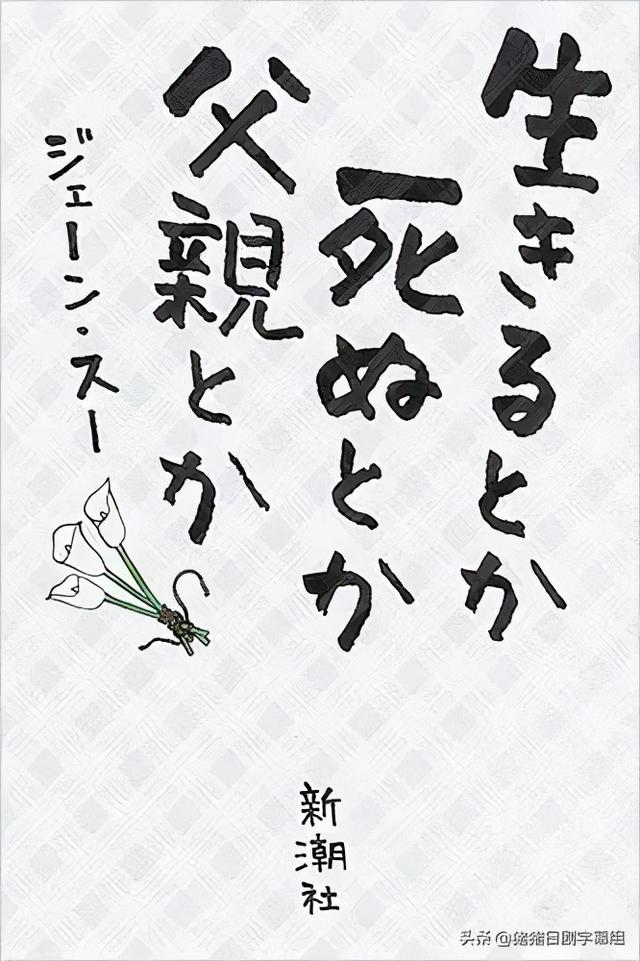 生きるとか
死ぬとか
父親とか
ジェーン・スー
新潮社
头条 @猪猪日剧字幕组